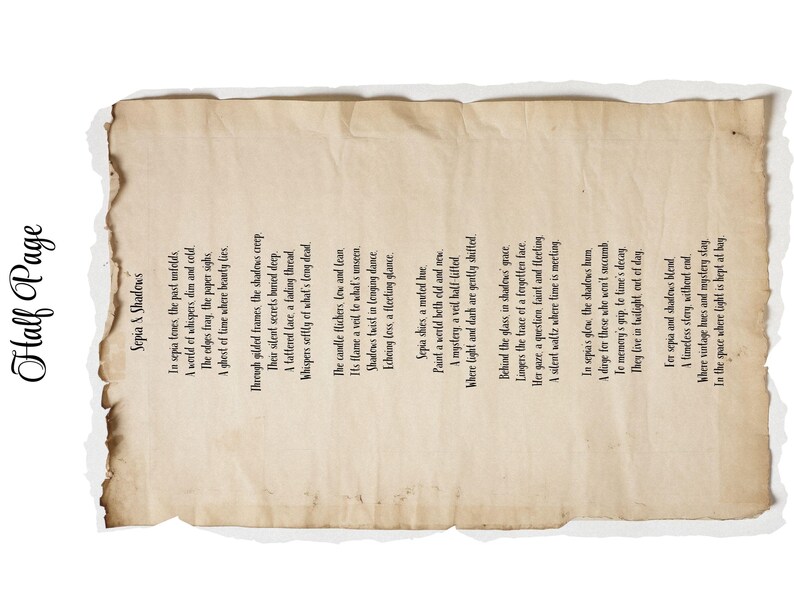 Half Page
Sepia & Shadows
In sepia tones, the past unfolds,
A world of whispers, dim and cold.
The edges fray, the paper sighs,
A ghost of time where beauty lies.
Through gilded frames, the shadows creep,
Their silent secrets buried deep.
A tattered lace, a fading thread,
Whispers softly of what's long dead.
The candle flickers, low and lean,
Its flame a veil to what's unseen.
Shadows twist in longing dance,
Echoing loss, a fleeting glance.
Sepia skies, a muted hue,
Paint a world both old and new.
A mystery, a veil half-lifted,
Where light and dark are gently shifted.
Behind the glass, in shadows' grace,
Lingers the trace of a forgotten face.
Her gaze, a question, faint and fleeting,
A silent waltz where time is meeting.
In sepia's glow, the shadows hum,
A dirge for those who won't succumb.
To memory's grip, to time's decay,
They live in twilight, out of day.
For sepia and shadows blend,
A timeless story, without end.
Where vintage hues and mystery stay,
In the space where light is kept at bay.